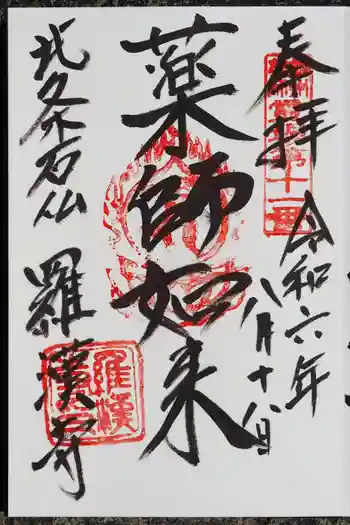 奉拝
令和六年
八月十八日
薬師如来
北条石仏
羅漢寺
羅漢